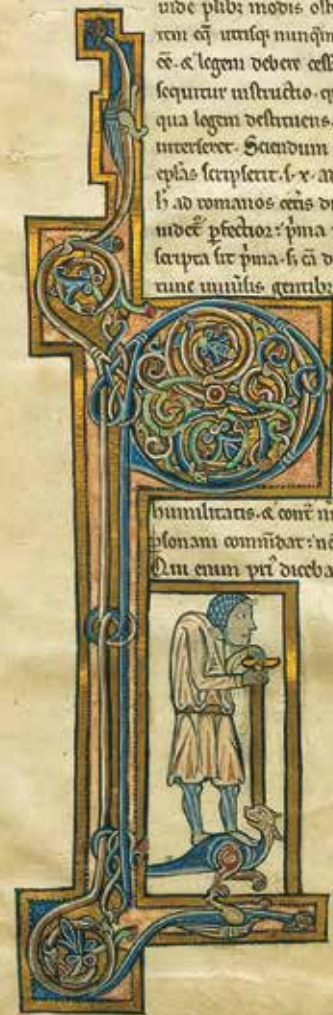 uide plib; modis oſt
rem eī utriſq; nunq̄m
cē. & legem debere ceſſ
ſequitur inſtructio. q
qua legem deſtruens.
interſeret. Sciendum
ep̄las ſcripſerit. .x. ad
h̄ ad romanos cet̄is di
uidet̄ pfectior: p̄ma
ſcripta ſit p̄ma. ſ; cā d
tunc gentib;
humilitatis. & cont̄
pſonam cōm̄dat: nō
Qui enim pri' diceba